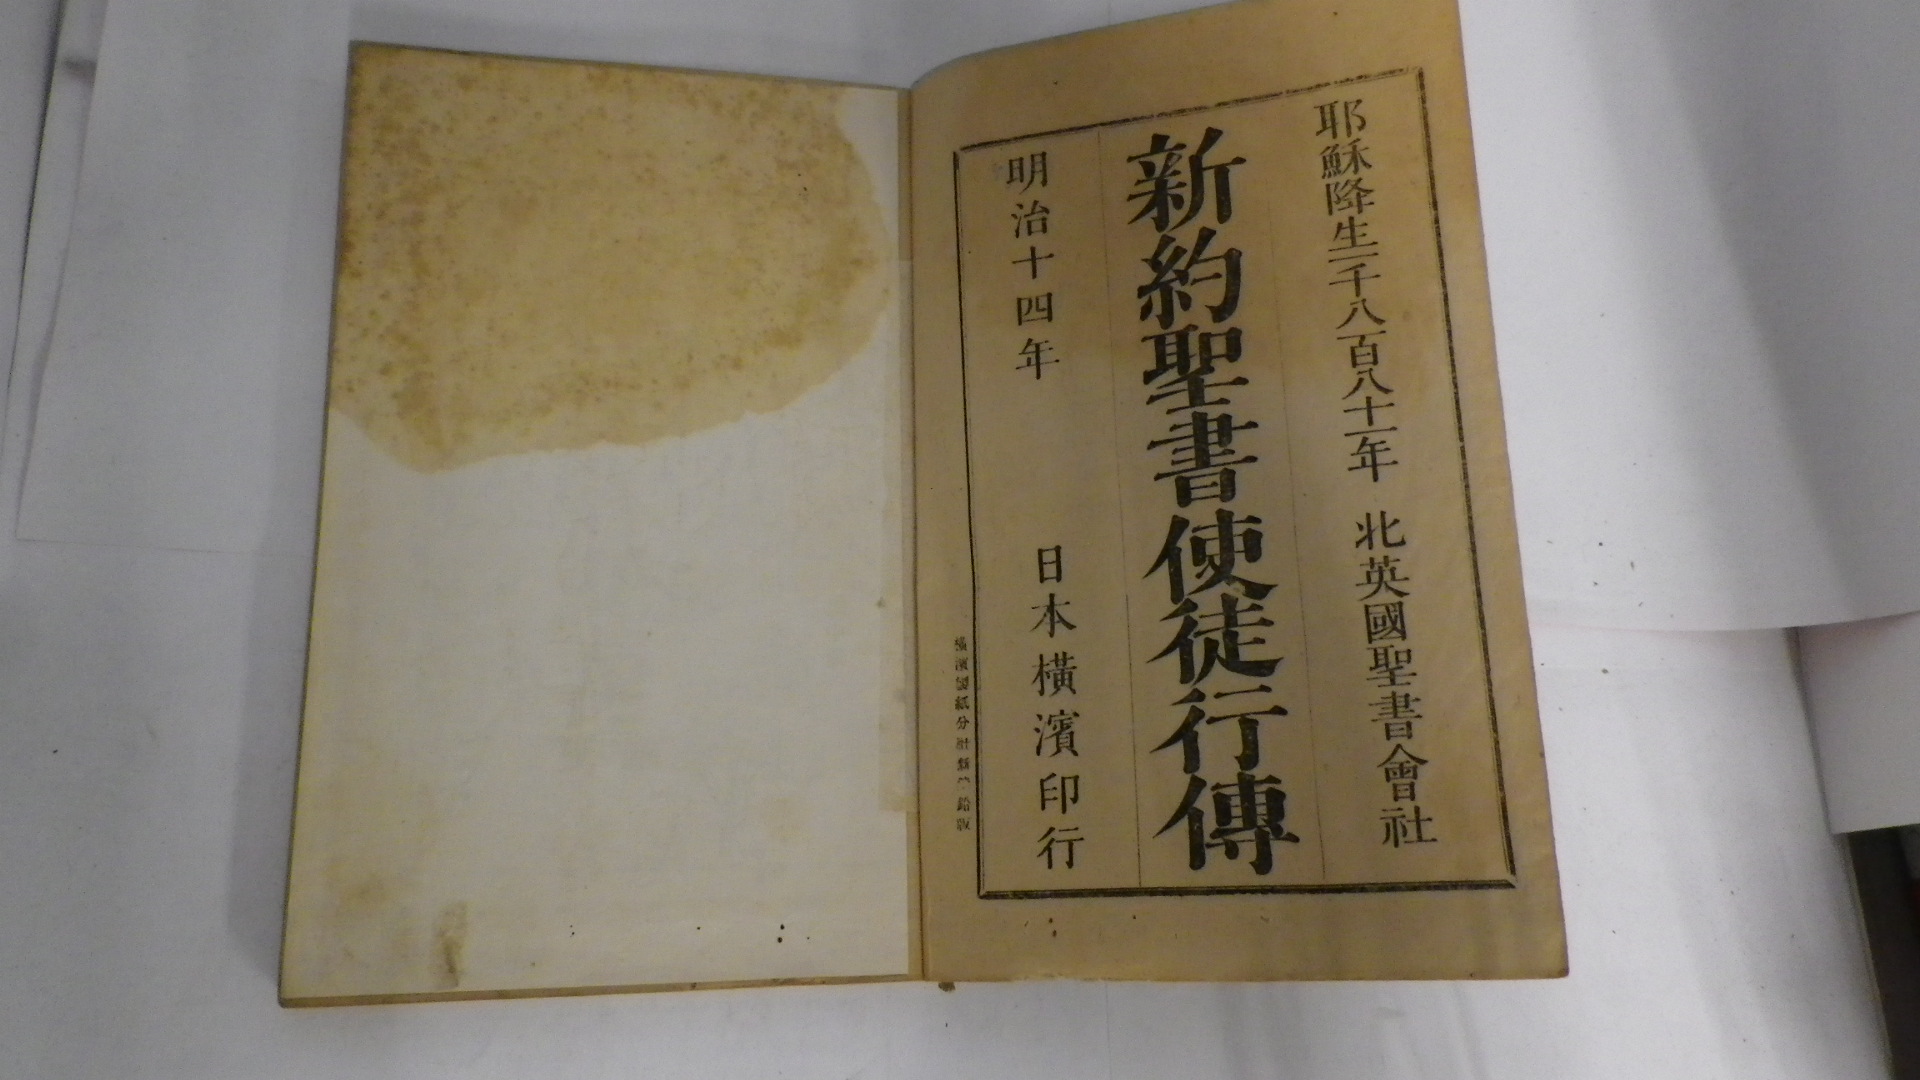 耶穌降生一千八百八十一年 北英國聖書會社
新約聖書使徒行傳
明治十四年 日本橫濱印行
橫濱製紙分社新製鉛版